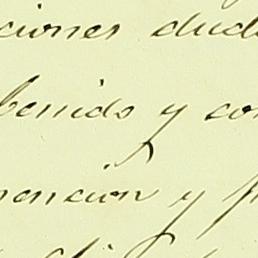 ciones dud
benido y con
mencion y f